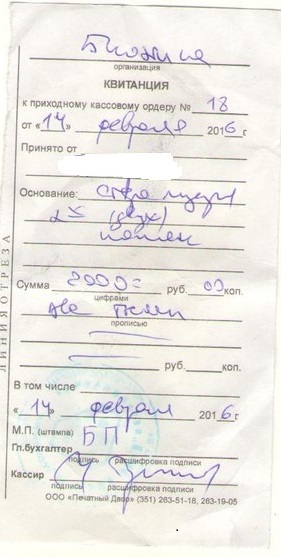 организация
КВИТАНЦИЯ
к приходному кассовому ордеру № 18
от «14» февраля 2016 г
Принято от
Основание:
2х (двух)
Сумма 2000= руб. 00 коп.
цифрами
две тысячи
прописью
руб. коп.
В том числе
«14» февраля 2016 г.
М.П. (штампа) БП
Гл.бухгалтер
подпись расшифровка подписи
Кассир
подпись расшифровка подписи
ООО «Печатный Двор» (351) 263-51-18, 263-19-05
ЛИНИЯ ОТРЕЗА